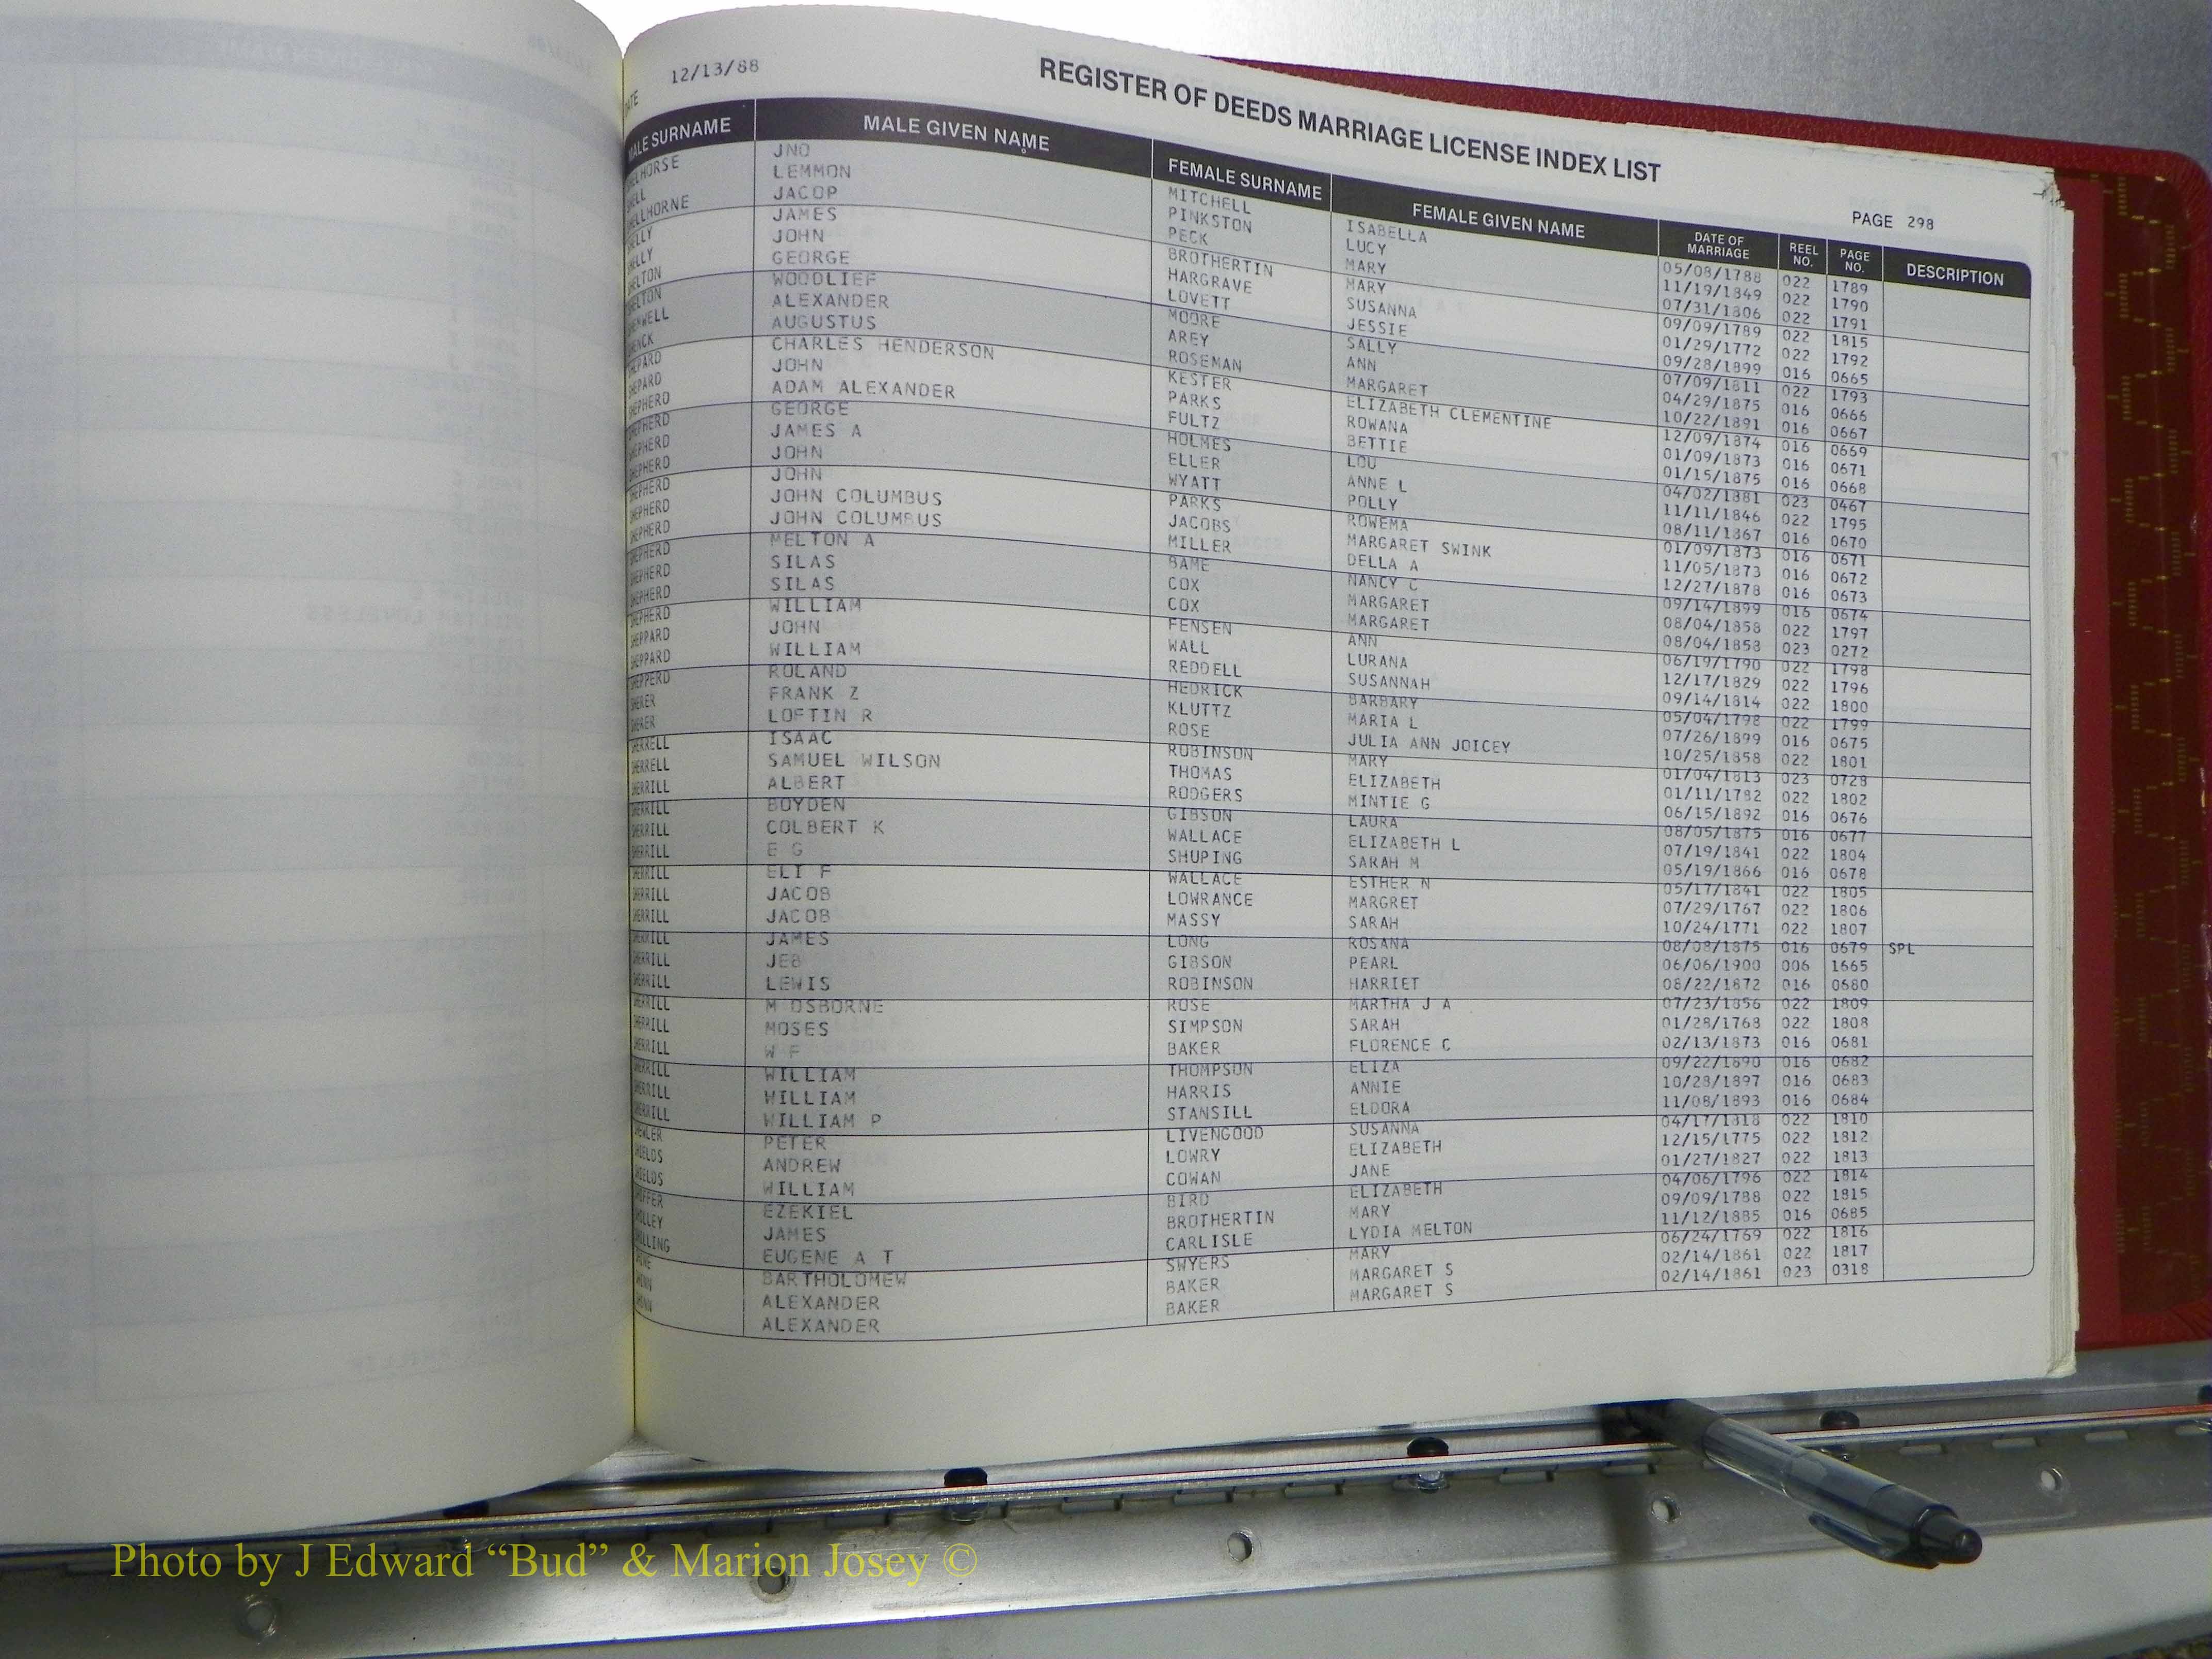 12/13/88
DATE
REGISTER OF DEEDS MARRIAGE LICENSE INDEX LIST
PAGE 298
MALE SURNAME MALE GIVEN NAME FEMALE SURNAME FEMALE GIVEN NAME DATE OF MARRIAGE REEL NO. PAGE NO. DESCRIPTION
ELLHORSE JNO MITCHELL ISABELLA 05/08/1788 022 1789
HELL LEMMON PINKSTON LUCY 11/19/1849 022 1790
ELLHORNE JACOP PECK MARY 07/31/1806 022 1791
HELLY JAMES BROTHERTIN MARY 09/09/1789 022 1815
HELLY JOHN HARGRAVE SUSANNA 01/29/1772 022 1792
HELTON GEORGE LOVETT JESSIE 09/28/1899 016 0665
HELTON WOODLIEF MOORE SALLY 07/09/1811 022 1793
HEMWELL ALEXANDER AREY ANN 04/29/1875 016 0666
HENCK AUGUSTUS ROSEMAN MARGARET 10/22/1891 016 0667
HEPARD CHARLES HENDERSON KESTER ELIZABETH CLEMENTINE 12/09/1874 016 0669
HEPARD JOHN PARKS ROWANA 01/09/1873 016 0671
HEPHERD ADAM ALEXANDER FULTZ BETTIE 01/15/1875 016 0668
HEPHERD GEORGE HOLMES LOU 04/02/1881 023 0467
HEPHERD JAMES A ELLER ANNE L 11/11/1846 022 1795
HEPHERD JOHN WYATT POLLY 08/11/1867 016 0670
HEPHERD JOHN PARKS ROWEMA 01/09/1873 016 0671
HEPHERD JOHN COLUMBUS JACOBS MARGARET SWINK 11/05/1873 016 0672
HEPHERD JOHN COLUMBUS MILLER DELLA A 12/27/1878 016 0673
HEPHERD MELTON A BAME NANCY C 09/14/1899 016 0674
HEPHERD SILAS COX MARGARET 08/04/1858 022 1797
HEPHERD SILAS COX MARGARET 08/04/1858 023 0272
HEPHERD WILLIAM FENSEN ANN 06/19/1790 022 1798
HEPPARD JOHN WALL LURANA 12/17/1829 022 1796
HEPPARD WILLIAM REDDELL SUSANNAH 09/14/1814 022 1800
HEPPERD ROLAND HEDRICK BARBARY 05/04/1798 022 1799
HERER FRANK Z KLUTTZ MARIA L 07/26/1899 016 0675
HERER LOFTIN R ROSE JULIA ANN JOICEY 10/25/1858 022 1801
HERRELL ISAAC ROBINSON MARY 01/04/1813 023 0728
HERRELL SAMUEL WILSON THOMAS ELIZABETH 01/11/1782 022 1802
HERRILL ALBERT RODGERS MINTIE G 06/15/1892 016 0676
HERRILL BOYDEN GIBSON LAURA 08/05/1875 016 0677
HERRILL COLBERT K WALLACE ELIZABETH L 07/19/1841 022 1804
HERRILL E G SHUPING SARAH M 05/19/1866 016 0678
HERRILL ELI F WALLACE ESTHER N 05/17/1841 022 1805
HERRILL JACOB LOWRANCE MARGRET 07/29/1767 022 1806
HERRILL JACOB MASSY SARAH 10/24/1771 022 1807
HERRILL JAMES LONG ROSANA 08/08/1875 016 0679 SPL
HERRILL JEB GIBSON PEARL 06/06/1900 006 1665
HERRILL LEWIS ROBINSON HARRIET 08/22/1872 016 0680
HERRILL M OSBORNE ROSE MARTHA J A 07/23/1856 022 1809
HERRILL MOSES SIMPSON SARAH 01/28/1768 022 1808
HERRILL W F BAKER FLORENCE C 02/13/1873 016 0681
HERRILL WILLIAM THOMPSON ELIZA 09/22/1890 016 0682
HERRILL WILLIAM HARRIS ANNIE 10/28/1897 016 0683
HERRILL WILLIAM P STANSILL ELDORA 11/08/1893 016 0684
HEWLER PETER LIVENGOOD SUSANNA 04/17/1818 022 1810
HIELDS ANDREW LOWRY ELIZABETH 12/15/1775 022 1812
HIELDS WILLIAM COWAN JANE 01/27/1827 022 1813
HIFFER EZEKIEL BIRD ELIZABETH 04/06/1796 022 1814
HILLEY JAMES BROTHERTIN MARY 09/09/1788 022 1815
HILLING EUGENE A T CARLISLE LYDIA MELTON 11/12/1885 016 0685
HINE BARTHOLOMEW SWYERS MARY 06/24/1769 022 1816
HINN ALEXANDER BAKER MARGARET S 02/14/1861 022 1817
HINN ALEXANDER BAKER MARGARET S 02/14/1861 023 0318
Photo by J Edward “Bud” & Marion Josey ©